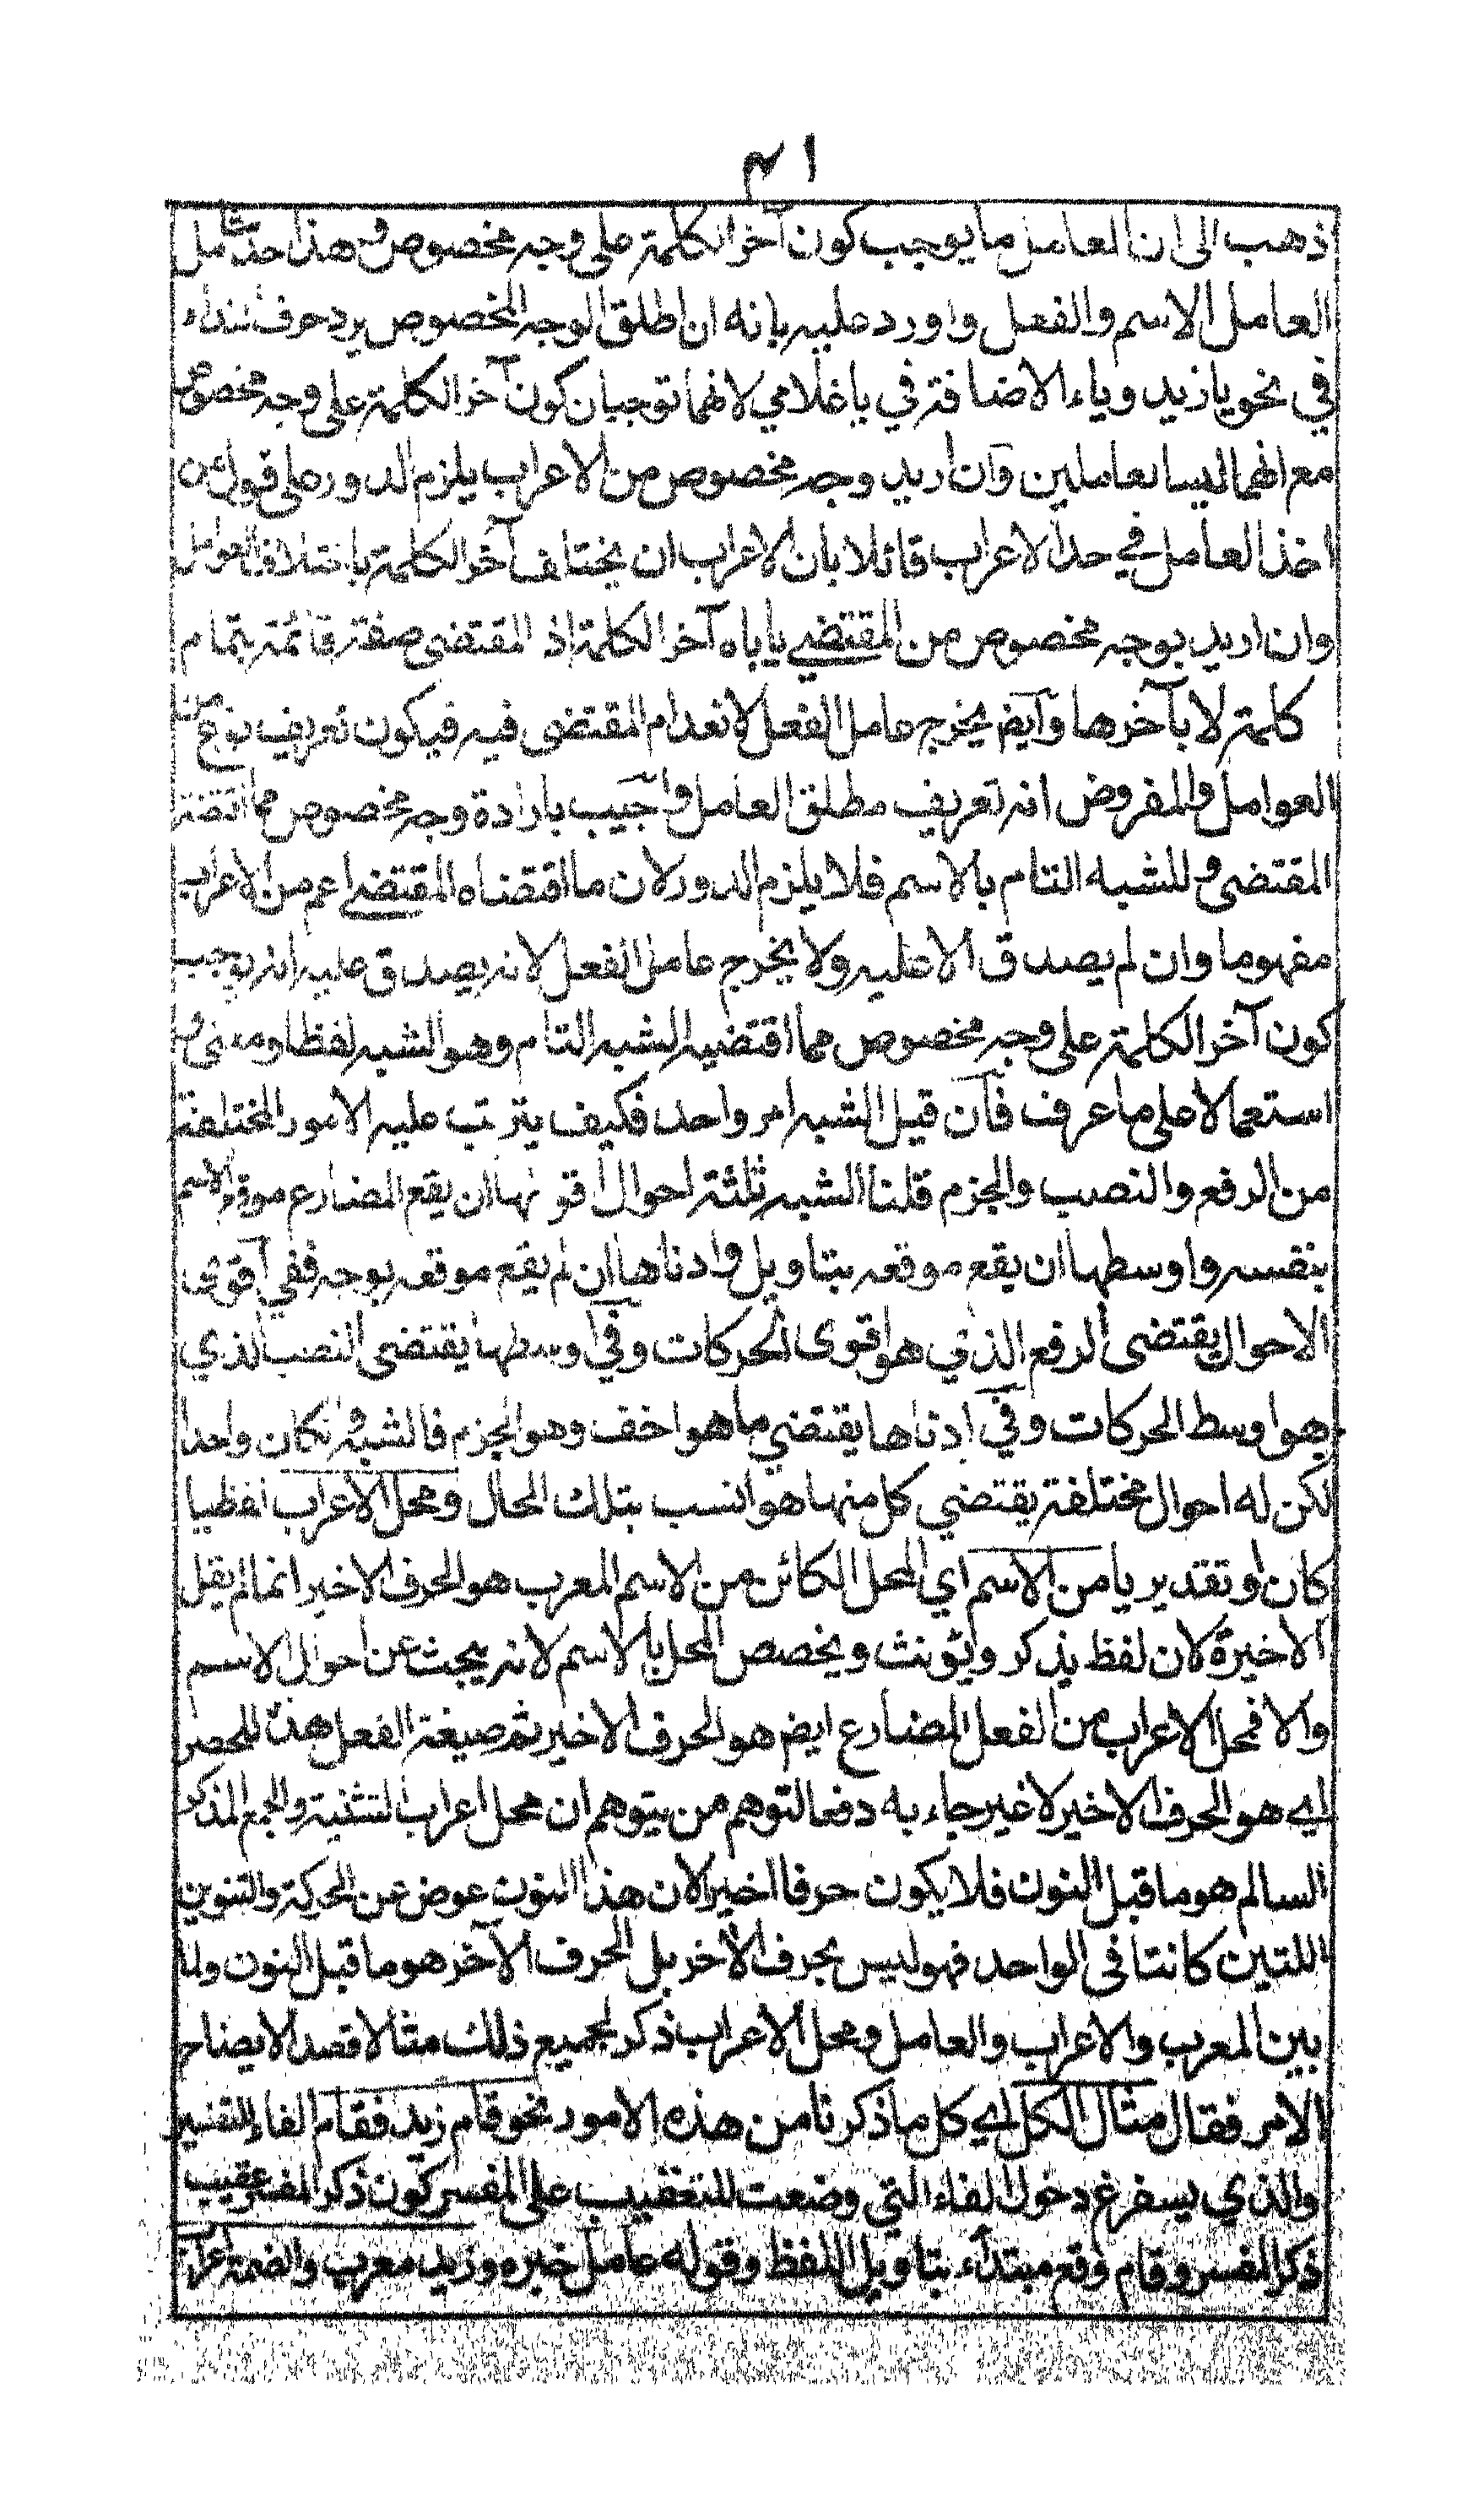 ٤١
ذهب الى ان العامل ما يوجب كون آخر الكلمة على وجه مخصوص وهذا حد شامل
العامل الاسم والفعل واورد عليه بانه ان اطلق الوجه المخصوص يرد حرف النداء
في نحو يا زيد وياء الاضافة في يا غلامي لانهما توجبان كون آخر الكلمة على وجه مخصوص
مع انهما ليسا بعاملين وان اريد وجه مخصوص من الاعراب يلزم الدور على قول من
اخذ العامل في حد الاعراب قائلا بان الاعراب ان يختلف آخر الكلمة باختلاف العوامل
وان اريد بوجه مخصوص من المقتضي ياباه آخر الكلمة اذ المقتضى صفة قائمة بتمام
كلمة لا بآخرها وايض يخرج عامل الفعل لانعدام المقتضى فيه فيكون تعريف نوع من
العوامل والمفروض انه تعريف مطلق العامل واجيب بارادة وجه مخصوص مما اقتضة
المقتضى وللشبه التام بالاسم فلا يلزم الدور لان ما اقتضاه المقتضي اعم من الاعراب
مفهوما وان لم يصدق الا عليه ولا يخرج عامل الفعل لانه يصدق عليه انه يوجب
كون آخر الكلمة على وجه مخصوص مما اقتضيه الشبه التام وهو الشبه لفظا ومعنى و
استعمالا على ما عرف فان قيل الشبه امر واحد فكيف يترتب عليه الامور المختلفة
من الرفع والنصب والجزم قلنا الشبه ثلثة احوال اقو نها ان يقع المضارع موقع الاسم
بنفسه واوسطها ان يقع موقعه بتاويل وادناها ان لم يقع موقعه بوجه ففي اقوى
الاحوال يقتضى الرفع الذي هو اقوى الحركات وفي اوسطها يقتضى النصب الذي
هو اوسط الحركات وفي ادناها يقتضي ما هو اخف وهو الجزم فالشبه وان كان واحدا
لكن له احوال مختلفة يقتضي كل منها هو انسب بتلك الحال ومحل الاعراب لفظيا
كان او تقديريا من الاسم اي المحل الكائن من الاسم المعرب هو الحرف الاخير انما لم يقل
الاخيرة لان لفظ يذكر ويؤنث ويخصص المحل بالاسم لانه يبحث عن احوال الاسم
والا فمحل الاعراب من الفعل المضارع ايض هو الحرف الاخير ثم صيغة الفعل هذا للحصر
اي هو الحرف الاخير لا غير جاء به دفعا لتوهم من يتوهم ان محل اعراب التثنية والجمع المذكر
السالم هو ما قبل النون فلا يكون حرفا اخيرا لان هذا النون عوض عن الحركة والتنوين
اللتين كانتا في الواحد فهو ليس بحرف الآخر بل الحرف الآخر هو ما قبل النون ولما
بين المعرب والاعراب والعامل ومحل الاعراب ذكر لجميع ذلك مثالا قصد لايضاح
الامر فقال مثال الكل اي كل ما ذكرنا من هذه الامور نحو قام زيد فقام الفاء للتفسير
والذي يسفرغ دخول الفاء التي وضعت للتعقيب على المفسر كون ذكر المفسر عقيب
ذكر المفسر وقام وقع مبتدآء بتاويل اللفظ وقوله عامل خبره وزيد معرب والضمة اعراب